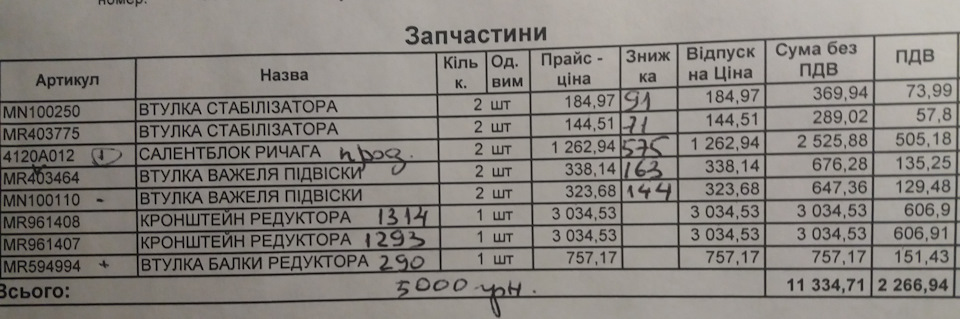 номер:
Запчастини
Артикул Назва Кільк. Од. вим Прайс - ціна Знижка Відпускна Ціна Сума без ПДВ ПДВ
MN100250 ВТУЛКА СТАБІЛІЗАТОРА 2 шт 184,97 91 184,97 369,94 73,99
MR403775 ВТУЛКА СТАБІЛІЗАТОРА 2 шт 144,51 71 144,51 289,02 57,8
4120A012 САЛЕНТБЛОК РИЧАГА прод. 2 шт 1 262,94 575 1 262,94 2 525,88 505,18
MR403464 ВТУЛКА ВАЖЕЛЯ ПІДВІСКИ 2 шт 338,14 163 338,14 676,28 135,25
MN100110 - ВТУЛКА ВАЖЕЛЯ ПІДВІСКИ 2 шт 323,68 144 323,68 647,36 129,48
MR961408 КРОНШТЕЙН РЕДУКТОРА 1314 1 шт 3 034,53 3 034,53 3 034,53 606,9
MR961407 КРОНШТЕЙН РЕДУКТОРА 1293 1 шт 3 034,53 3 034,53 3 034,53 606,91
MR594994 + ВТУЛКА БАЛКИ РЕДУКТОРА 290 1 шт 757,17 757,17 757,17 151,43
Всього: 5000 грн. 11 334,71 2 266,94